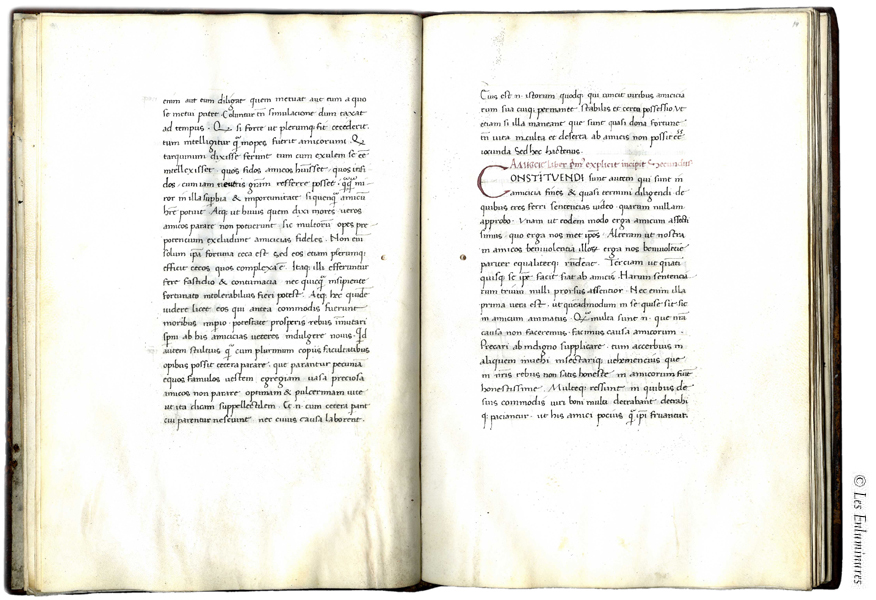 enim aut eum diligat quem metuat aut eum a quo
se metui putet. Coluntur tn simulacione dum taxat
ad tempus. Q si forte ut plerumq fit ceciderit.
tum intelligitur q mopes fuerit amicorum. Q
tarquinum dixisse ferunt tum cum exulem se ee
intellexisset quos fidos amicos huisset quos infi
dos. cum iam neutris gram refferre posset. qq mi-
ror in illa supbia & inportunitate si quenq amicu
hre potuit. Atq ut huius quem dixi mores ueros
amicos parare non potuerunt sic multoru opes pre
potencium excludunt amicicias fideles. Non eni
solum ipa fortuna ceca est sed eos etiam plerumq
efficit cecos quos complexa e. Itaq illi efferuntur
fere fastidio & contumacia nec quicq insipiente
fortunato intolerabilius fieri potest. Atq hec quide
uidere licet eos qui antea commodis fuerunt
moribus inpio potestate prosperis rebus inmutari
spni ab his amicicias ueteres indulgere nouis. Qd
autem stultius q cum plurimum copiis facultatibus
opibus possit cetera parare. que parantur pecunia
equos famulos uestem egregiam uasa preciosa
amicos non parare optimam & pulcerrimam uite
ut ita dicam suppellectilem. Et n cum cetera parat
cui parentur nesciunt nec cuius causa laborent.
Cuius est n istorum quodq qui uincit uiribus amicicia
rum sua cuiq permanet stabilis et certa possessio. Ut
etiam si illa maneant que sunt quasi dona fortune
tn uita inculta et deserta ab amicis non possit ee
iocunda. Sed hec hactenus.
Amicicie liber pm explicit incipit Secundus
CONSTITUENDI sunt autem qui sint in
amicicia fines & quasi termini diligendi de
quibus tres ferri sentencias uideo quarum nullam
approbo. Unam ut eodem modo erga amicum affecti
simus quo erga nos met ipos. Alteram ut nostra
in amicos beniuolentia illorum erga nos beniuolentie
pariter equaliterq rndeat. Terciam ut quati
quisq se ipe facit fiat ab amicis. Harum sentencia
rum trium nulli prorsus assentior. Nec enim illa
prima uera est ut quemadmodum in se quisq sit sic
in amicum animatus. Q multa sunt n que nra
causa non faceremus facimus causa amicorum.
Precari ab indigno supplicare tum accerbius in
aliquem inuehi insectariq uehementius que
in nris rebus non satis honeste in amicorum fiunt
honestissime. Multeq res sunt in quibus de
suis commodis uiri boni multa detrahunt detrahi
q paciantur ut his amici pocius q ipi fruantur.
© Les Enluminures